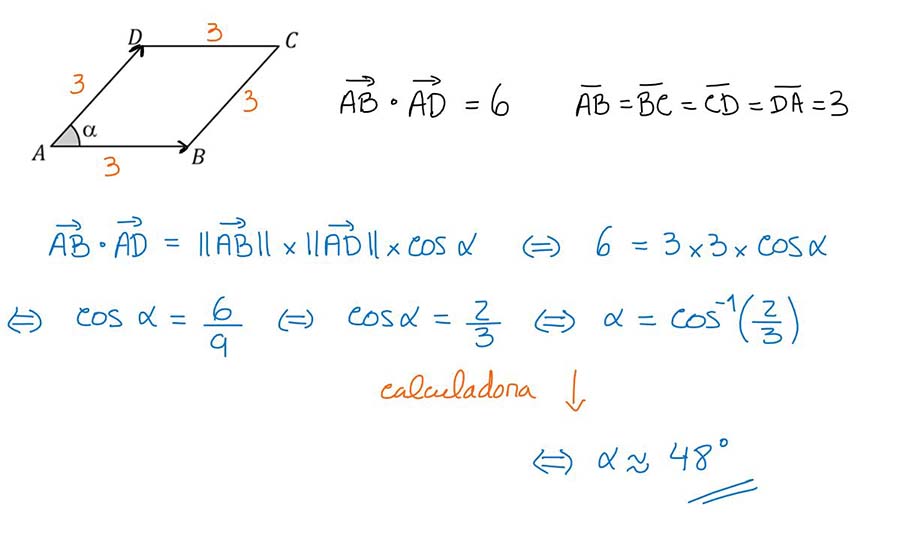 D 3 C
3 3
A α B
3
AB⃗ · AD⃗ = 6 A̅B̅ = B̅C̅ = C̅D̅ = D̅A̅ = 3
AB⃗ · AD⃗ = ||AB⃗|| × ||AD⃗|| × cos α ⇔ 6 = 3 × 3 × cos α
⇔ cos α = 6/9 ⇔ cos α = 2/3 ⇔ α = cos⁻¹(2/3)
calculadora ↓
⇔ α ≈ 48°